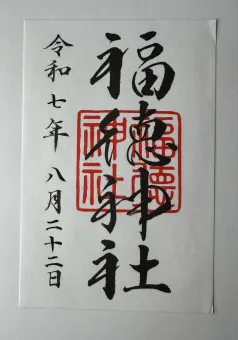 福徳神社
令和七年 八月二十二日
福徳神社